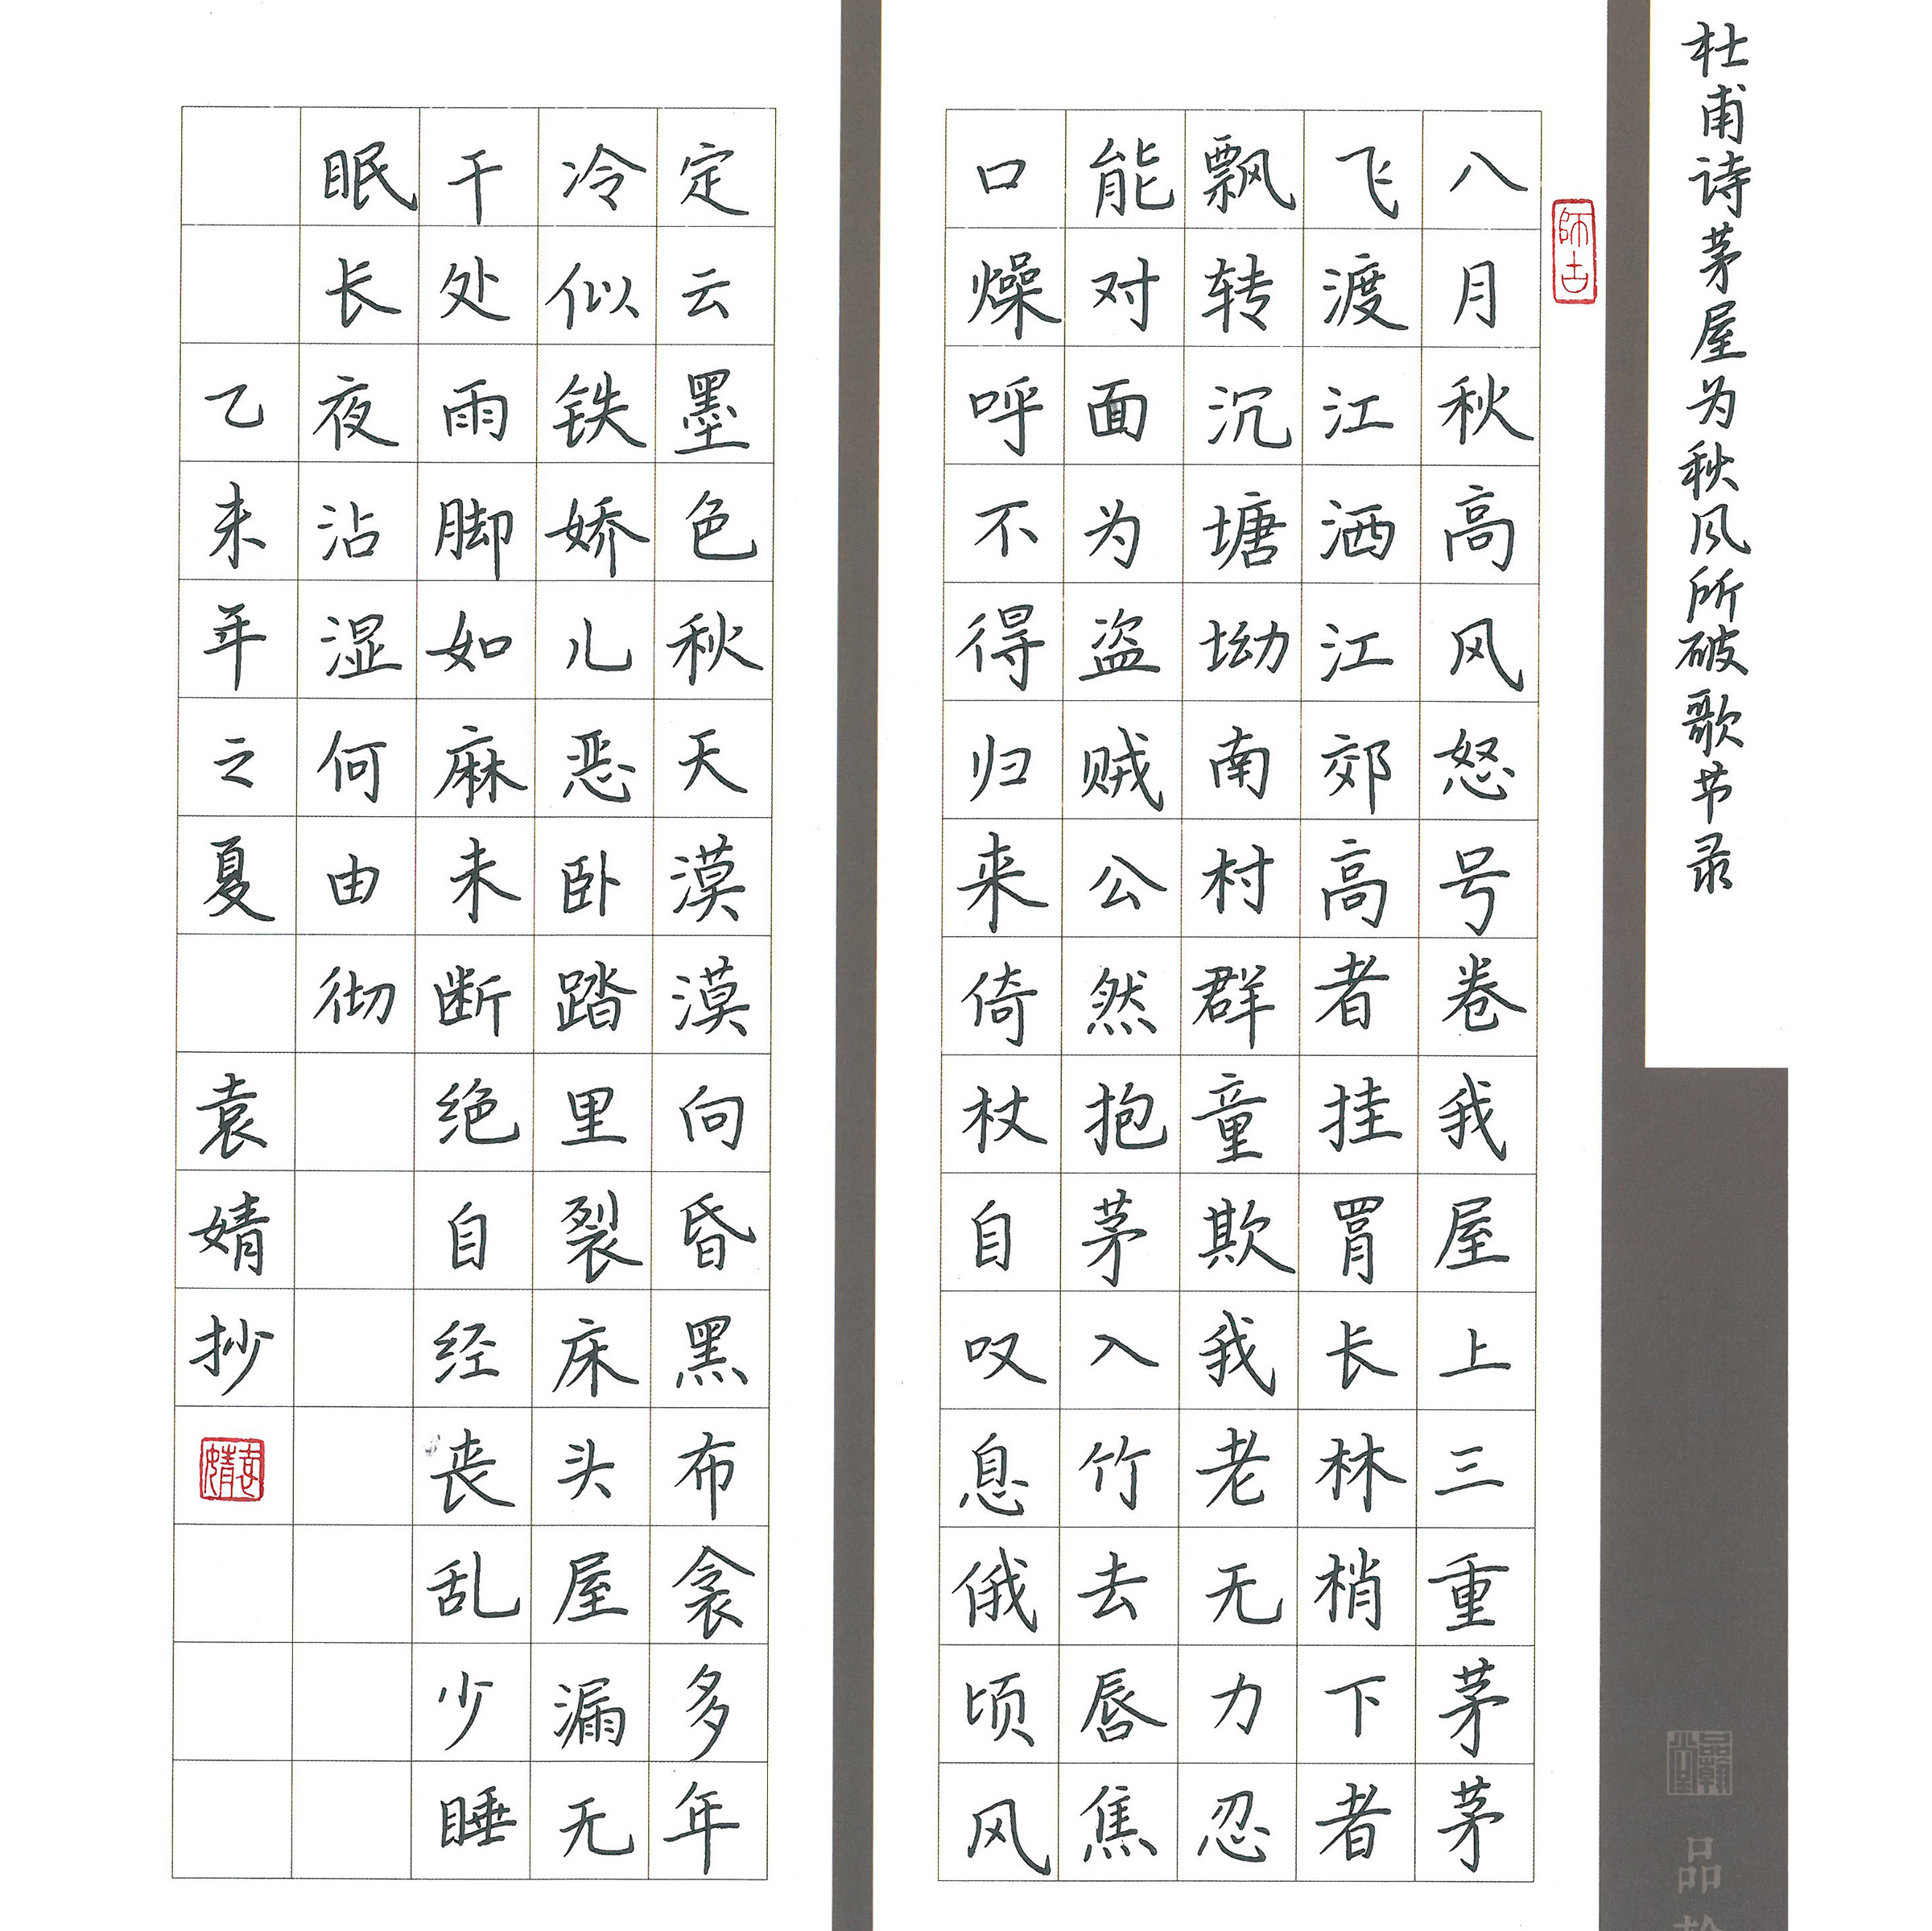 杜甫诗茅屋为秋风所破歌节录
师古
八月秋高风怒号卷我屋上三重茅茅
飞渡江洒江郊高者挂罥长林梢下者
飘转沉塘坳南村群童欺我老无力忍
能对面为盗贼公然抱茅入竹去唇焦
口燥呼不得归来倚杖自叹息俄顷风
定云墨色秋天漠漠向昏黑布衾多年
冷似铁娇儿恶卧踏里裂床头屋漏无
干处雨脚如麻未断绝自经丧乱少睡
眠长夜沾湿何由彻
乙未年之夏 袁婧抄
袁婧
品